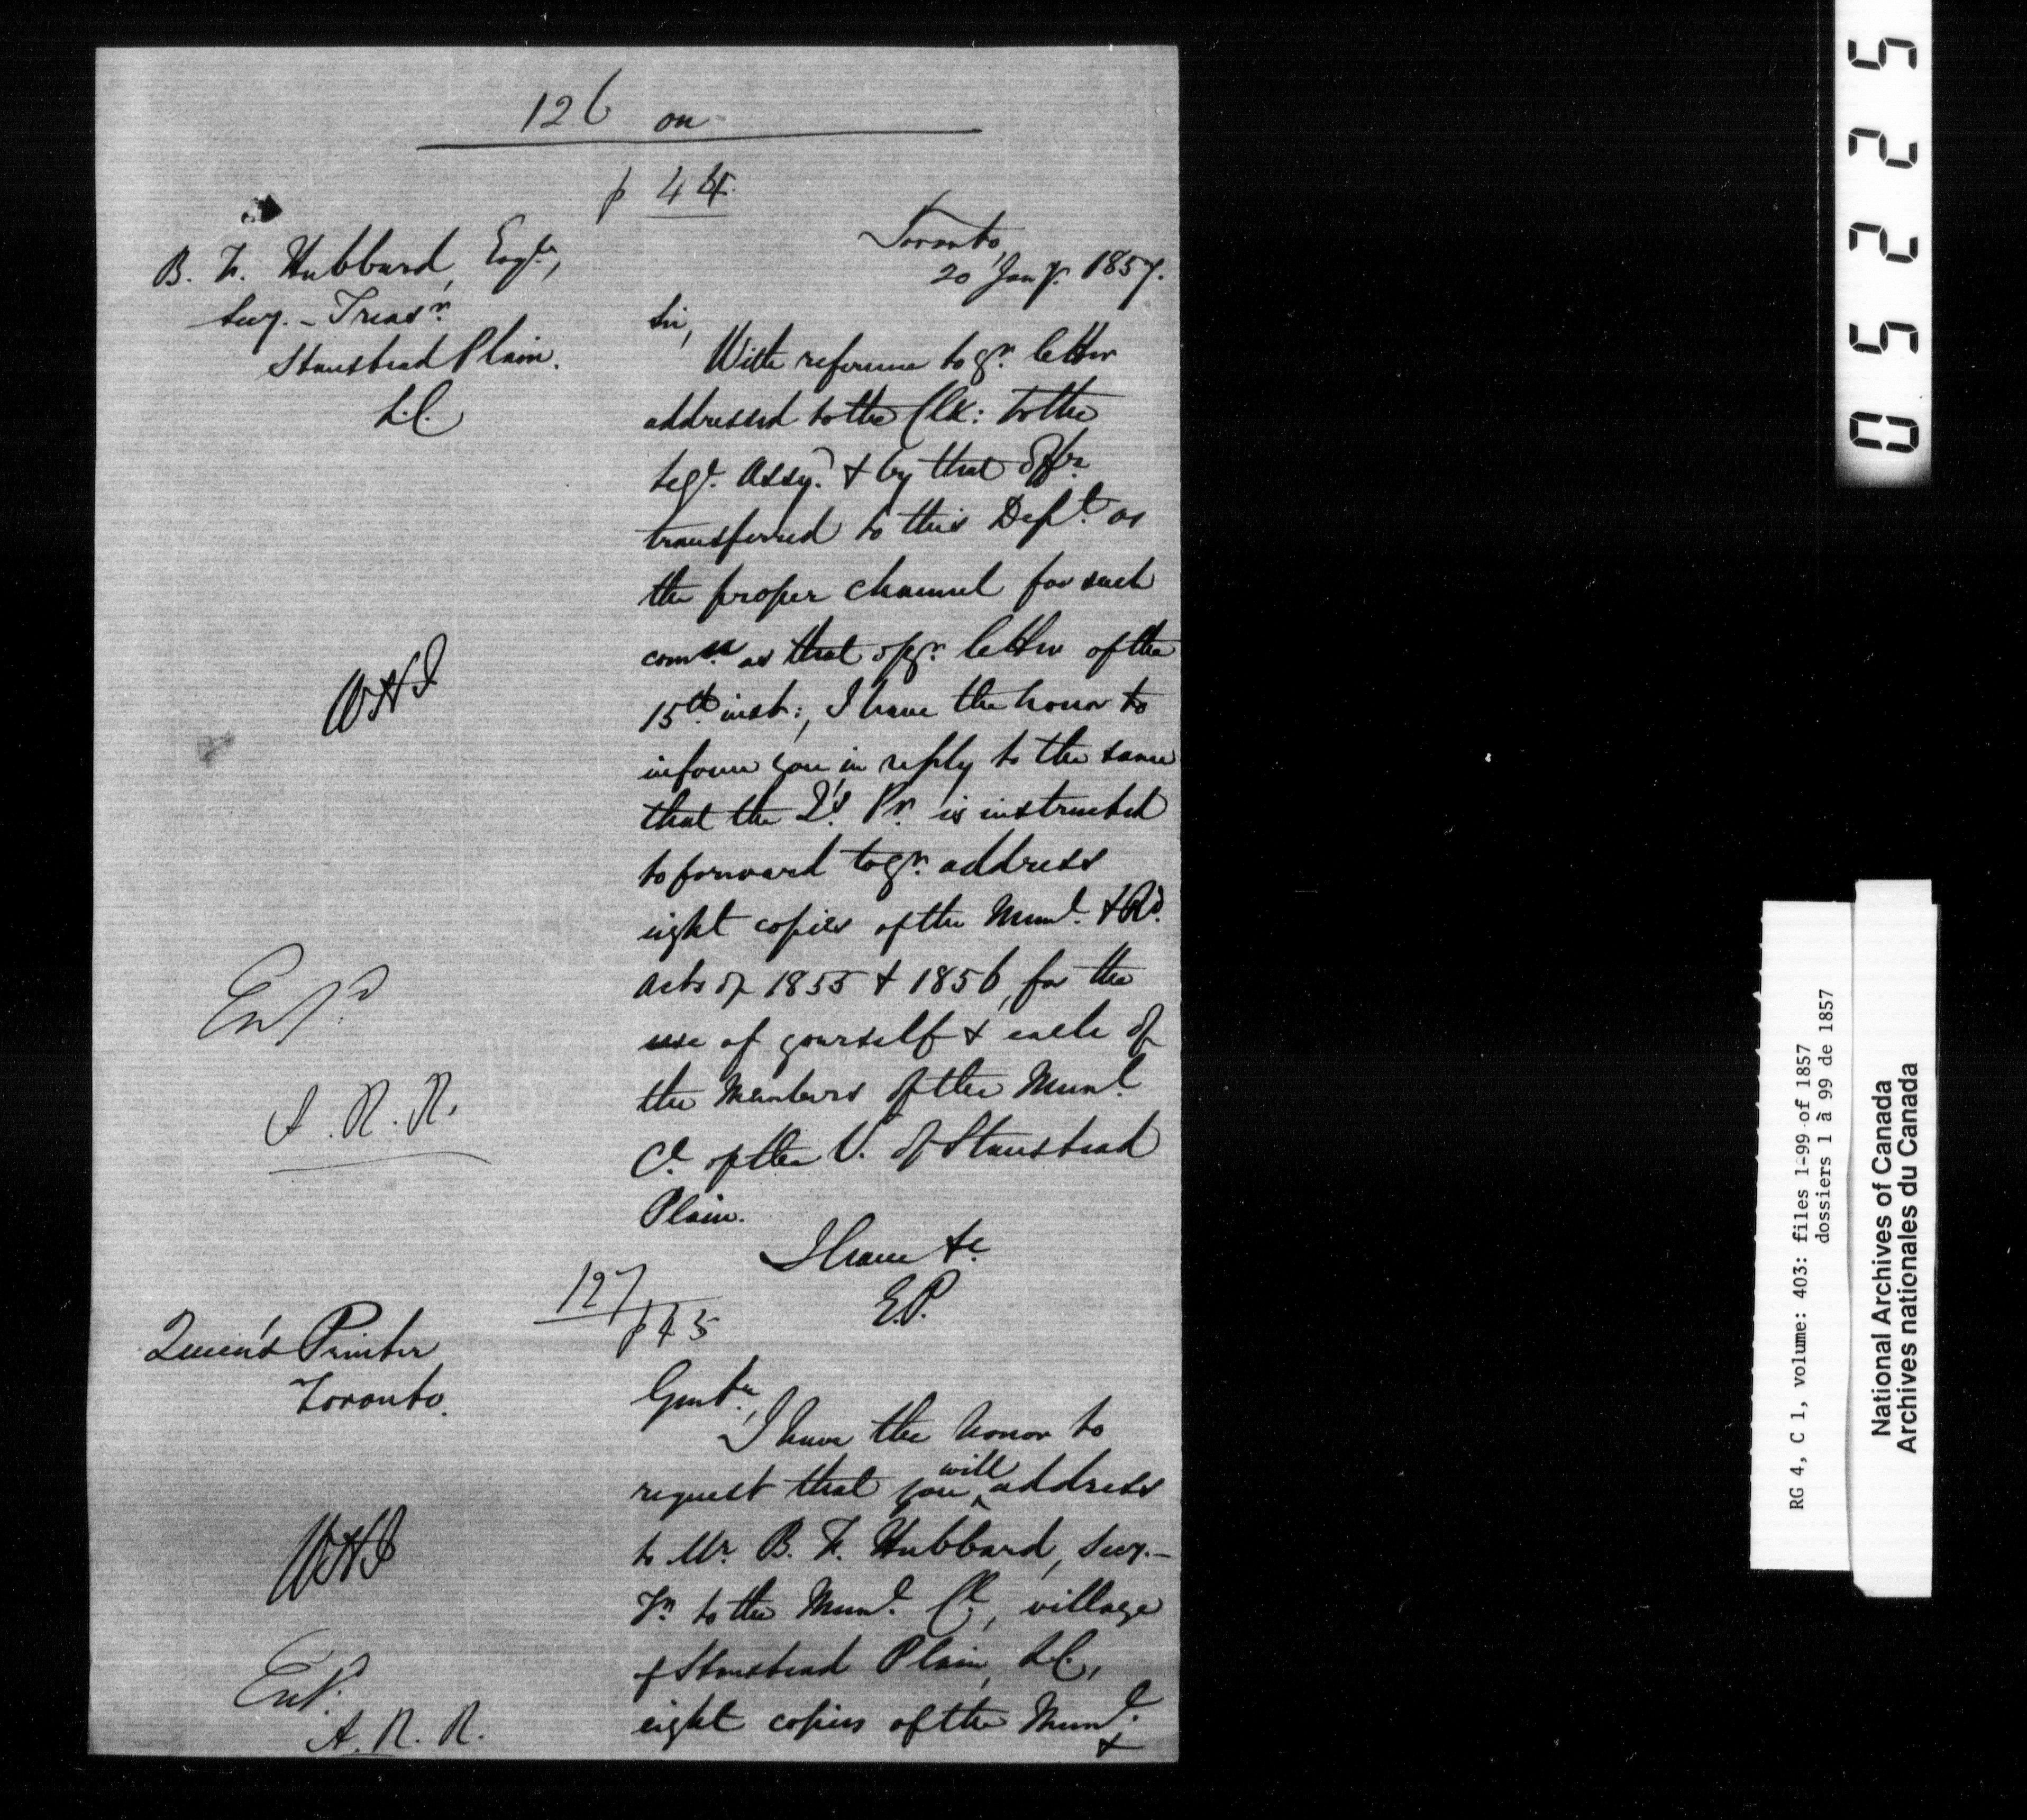 126 on
p 44.
B. F. Hubbard, Esqre,
Secy. - Treasr
Stanstead Plain.
L.C.
Toronto,
20 Jany. 1857.
Sir,
With reference to yr. letter
addressed to the Clk: to the
Legt. Assy. & by that Offr.
transferred to this Dept. as
the proper channel for such
comn. as that of yr. letter of the
15th. inst:, I have the honor to
inform you in reply to the same
that the Q's. Pr. is instructed
to forward to yr. address
eight copies of the Munl. & Rd.
Acts of 1855 & 1856, for the
use of yourself & each of
the Members of the Munl.
Cl. of the V. of Stanstead
Plain.
I have &c
E.P.
WHJ
Entd.
A. R. R.
127
p 45
Queen's Printer
Toronto.
Gentn.,
I have the honor to
request that you will address
to Mr. B. F. Hubbard, Secy.-
Tr. to the Munl. Cl., village
of Stanstead Plain, L.C.,
eight copies of the Munl. &
WHJ
Entd.
A. R. R.
05225
RG 4, C 1, volume: 403: files 1-99 of 1857
dossiers 1 à 99 de 1857
National Archives of Canada
Archives nationales du Canada